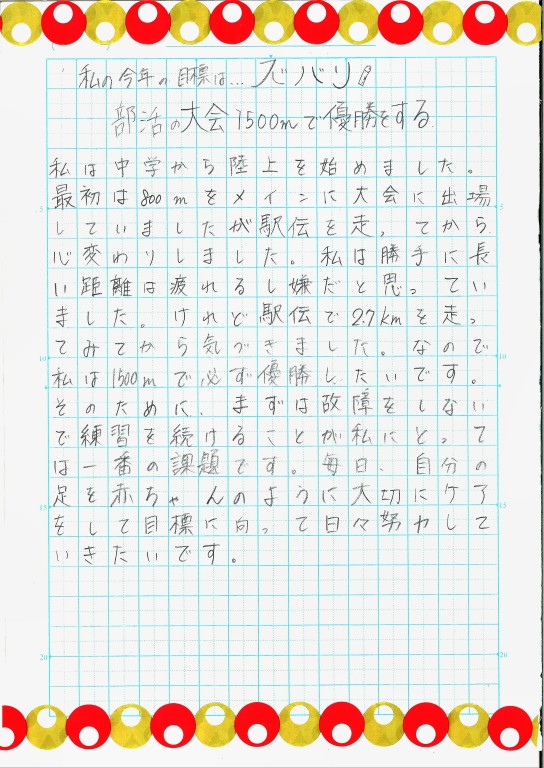 私の今年の目標は...ズバリ!
部活の大会1500mで優勝をする
私は中学から陸上を始めました。
最初は800mをメインに大会に出場
していましたが駅伝を走ってから
心変わりしました。私は勝手に長
い距離は疲れるし嫌だと思ってい
ました。けれど駅伝で2.7kmを走っ
てみてから気づきました。なので
私は1500mで必ず優勝したいです。
そのために、まずは故障をしない
で練習を続けることが私にとって
は一番の課題です。毎日、自分の
足を赤ちゃんのように大切にケア
をして目標に向って日々努力して
いきたいです。
5
5
10
10
15
15
20
20